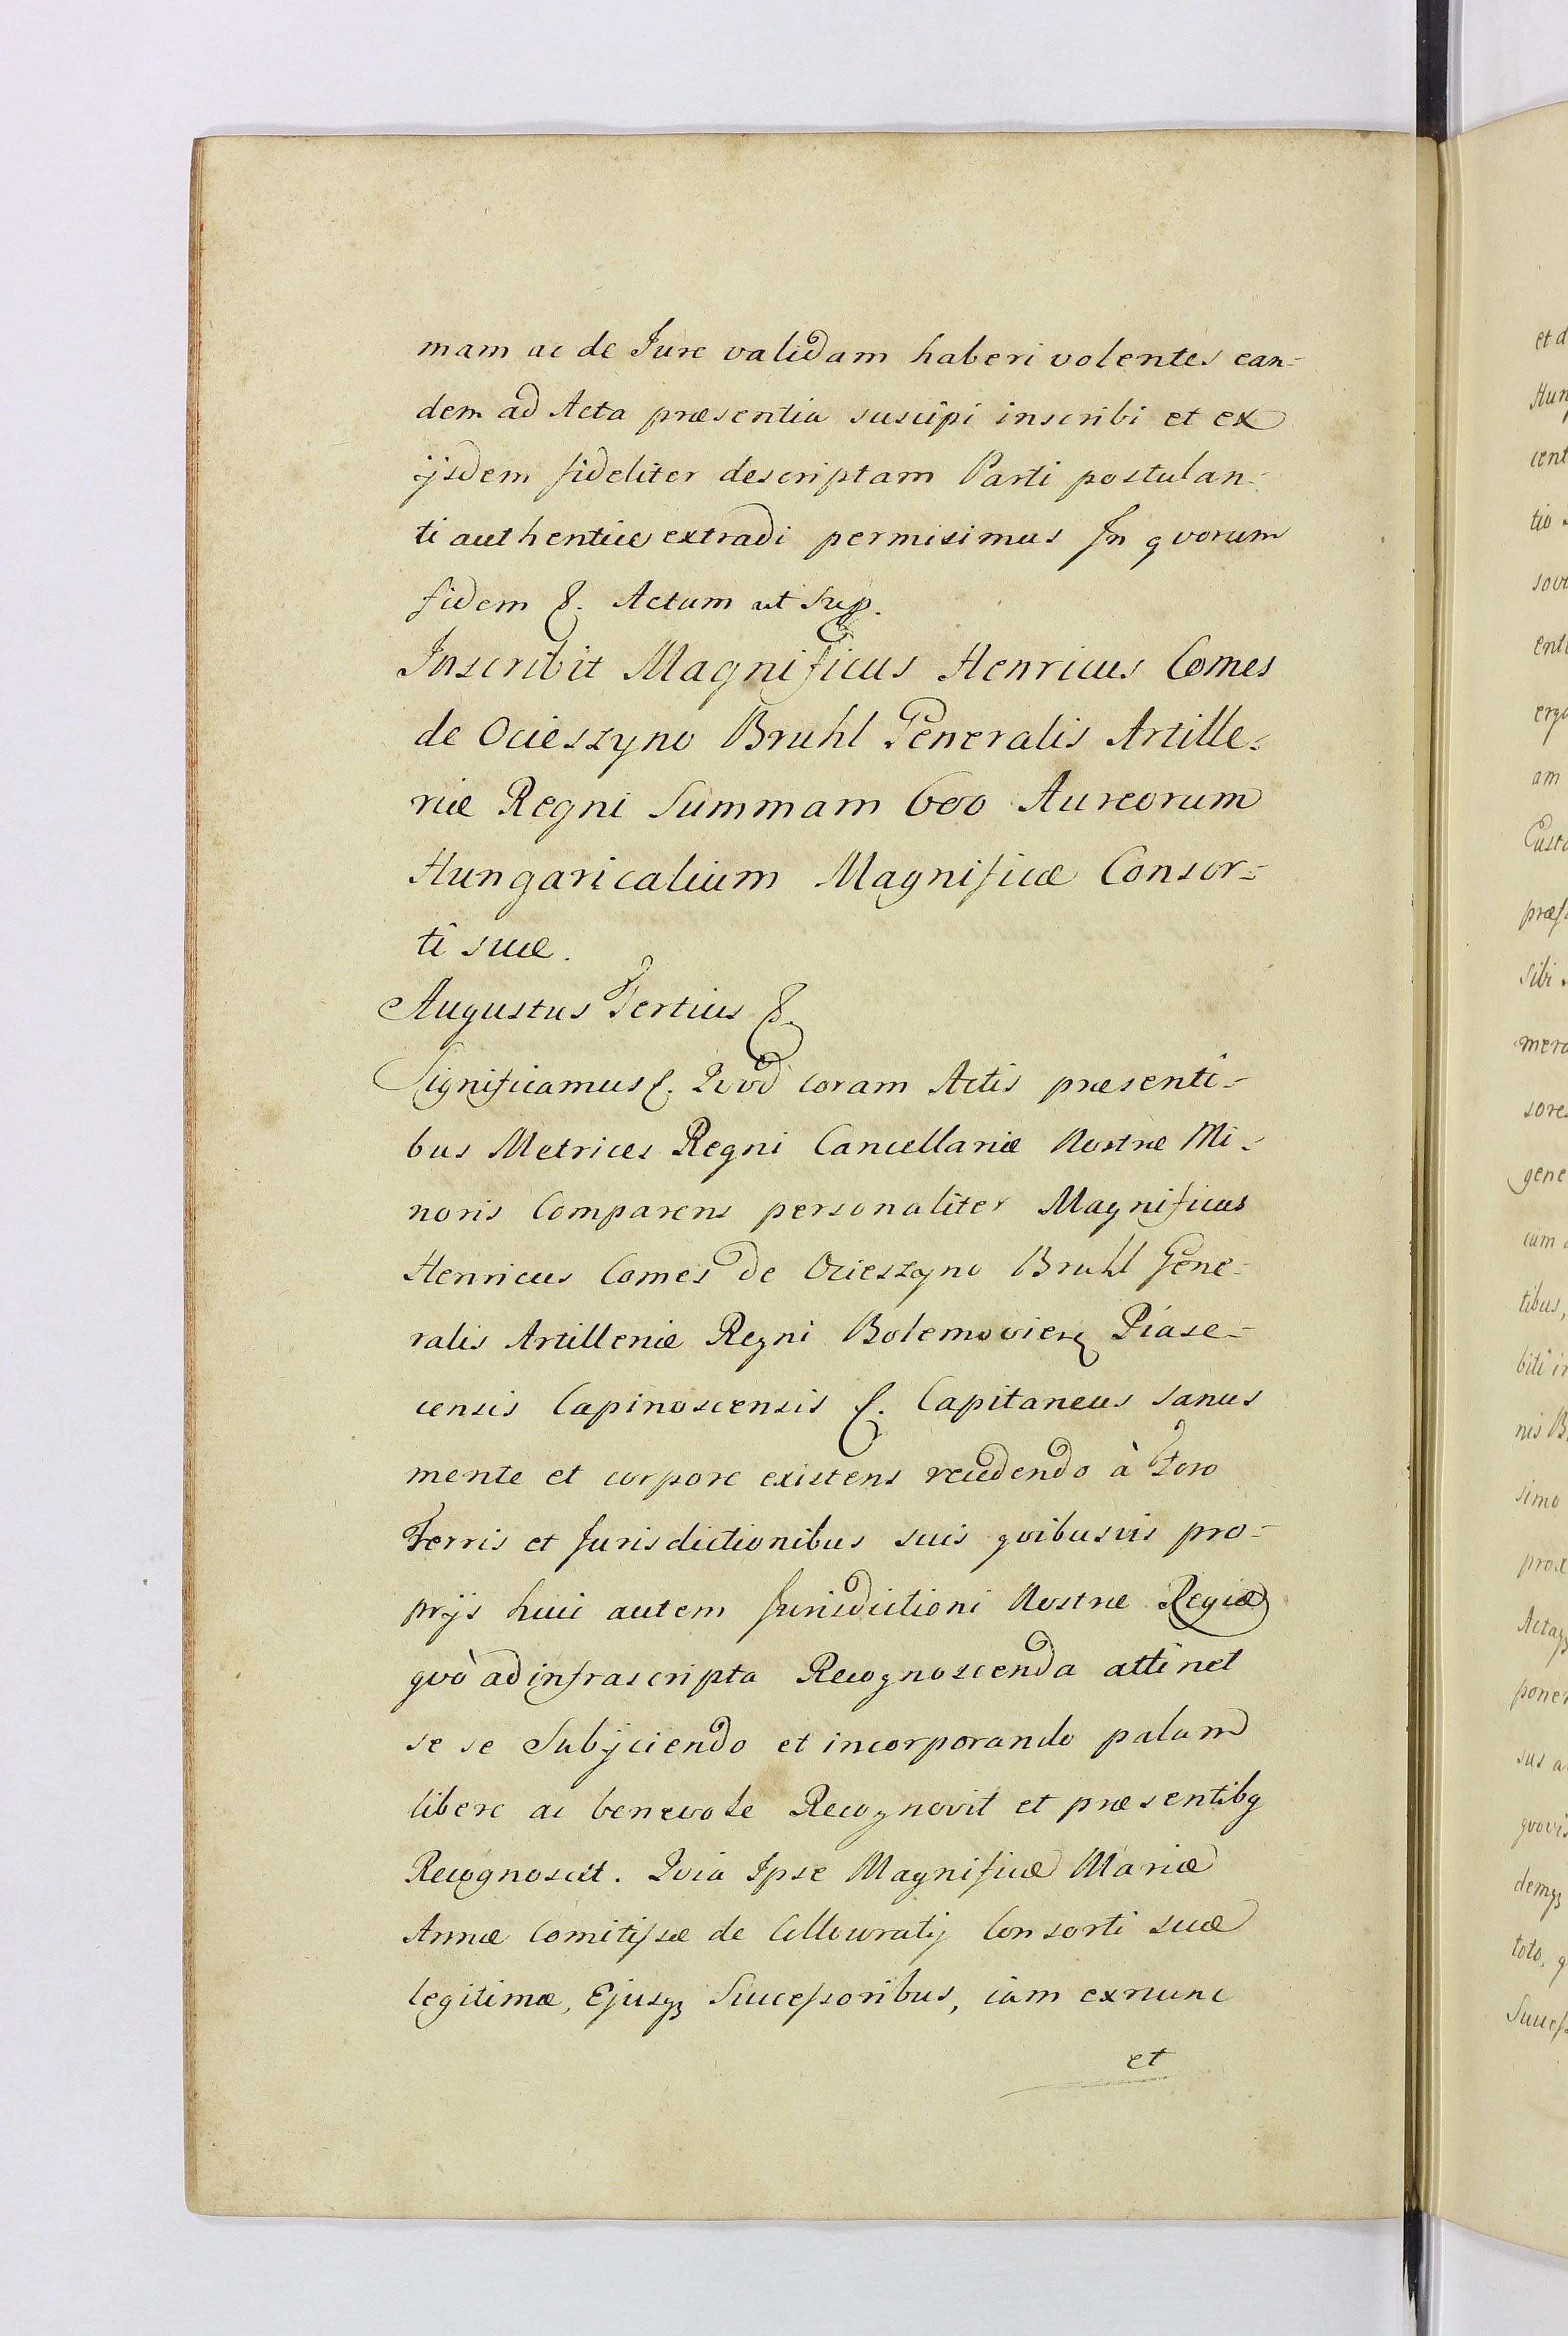 mam ac de Jure validam haberi volentes ean-
dem ad Acta præsentia suscipi inscribi et ex
ijsdem fideliter descriptam Parti postulan-
ti authentice extradi permisimus In qvorum
fidem &. Actum ut Sup.
Inscribit Magnificus Henricus Comes
de Ocieszyno Bruhl Generalis Artille-
riæ Regni Summam 600 Aureorum
Hungaricalium Magnificæ Consor-
ti suæ.
Augustus Tertius &.
Significamus &. Qvod coram Actis præsenti-
bus Metrices Regni Cancellariæ Nostræ Mi-
noris Comparens personaliter Magnificus
Henricus Comes de Ocieszyno Bruhl Gene-
ralis Artilleriæ Regni Bolemovien Piase-
censis Capinoscensis &. Capitaneus sanus
mente et corpore existens recedendo à Foro
Terris et Jurisdictionibus suis qvibusvis pro-
prijs huic autem Jurisdictioni Nostræ Regiæ
qvò ad infrascripta Recognoscenda attinet
se se Subijciendo et incorporando palam
libere ac benevole Recognovit et præsentibq
Recognoscit. Qvia Ipse Magnificæ Mariæ
Annæ Comitissæ de Collowratij Consorti suæ
legitimæ, Ejusqз Successoribus, iam exnunc
et